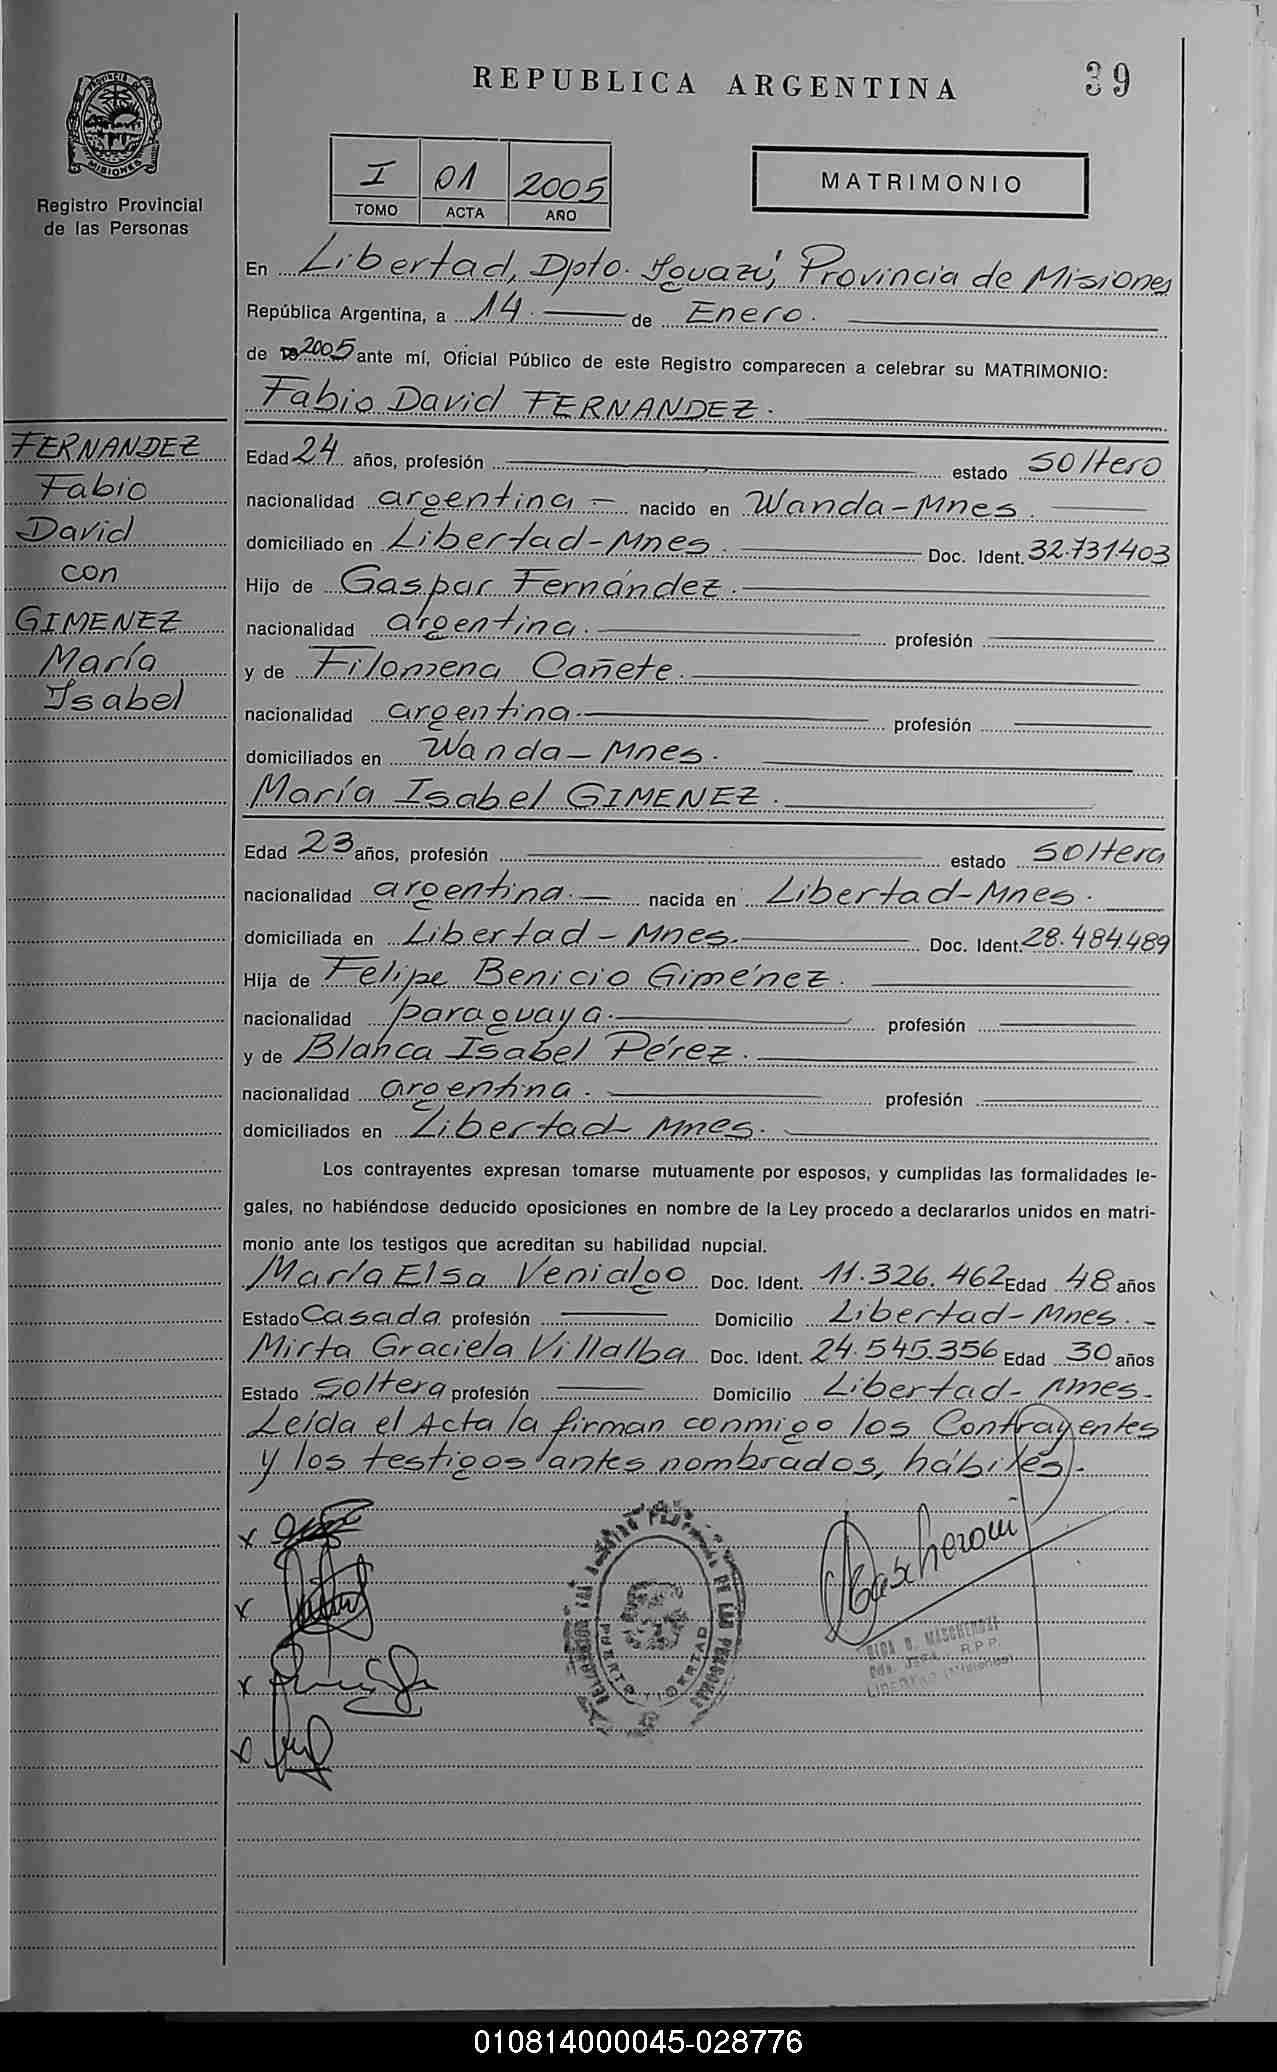 REPUBLICA ARGENTINA
39
PROVINCIA DE
MISIONES
Registro Provincial
de las Personas
I 01 2005
TOMO ACTA AÑO
MATRIMONIO
En Libertad, Dpto. Iguazú, Provincia de Misiones
República Argentina, a 14 de Enero.
de 2005 ante mí, Oficial Público de este Registro comparecen a celebrar su MATRIMONIO:
Fabio David FERNANDEZ.
FERNANDEZ
Fabio
David
con
GIMENEZ
María
Isabel
Edad 24 años, profesión estado soltero
nacionalidad argentina - nacido en Wanda-Mnes.
domiciliado en Libertad-Mnes. Doc. Ident. 32.731403
Hijo de Gaspar Fernández.
nacionalidad argentina. profesión
y de Filomena Cañete.
nacionalidad argentina. profesión
domiciliados en Wanda-Mnes.
María Isabel GIMENEZ.
Edad 23 años, profesión estado soltera
nacionalidad argentina.- nacida en Libertad-Mnes.
domiciliada en Libertad-Mnes. Doc. Ident. 28.484.489
Hija de Felipe Benicio Giménez.
nacionalidad paraguaya. profesión
y de Blanca Isabel Pérez.
nacionalidad argentina. profesión
domiciliados en Libertad Mnes.
Los contrayentes expresan tomarse mutuamente por esposos, y cumplidas las formalidades le-
gales, no habiéndose deducido oposiciones en nombre de la Ley procedo a declararlos unidos en matri-
monio ante los testigos que acreditan su habilidad nupcial.
María Elsa Venialgo Doc. Ident. 11.326.462 Edad 48 años
Estado Casada profesión Domicilio Libertad-Mnes.-
Mirta Graciela Villalba Doc. Ident. 24.545.356 Edad 30 años
Estado Soltera profesión Domicilio Libertad-Mnes.
Leída el Acta la firman conmigo los Contrayentes
y los testigos antes nombrados, hábiles.
x
x
x
x
Mascheroni
DE LAS PERSONAS
PUERTO LIBERTAD
MASCHERONI
R.P.P.
LIBERTAD (Misiones)
010814000045-028776